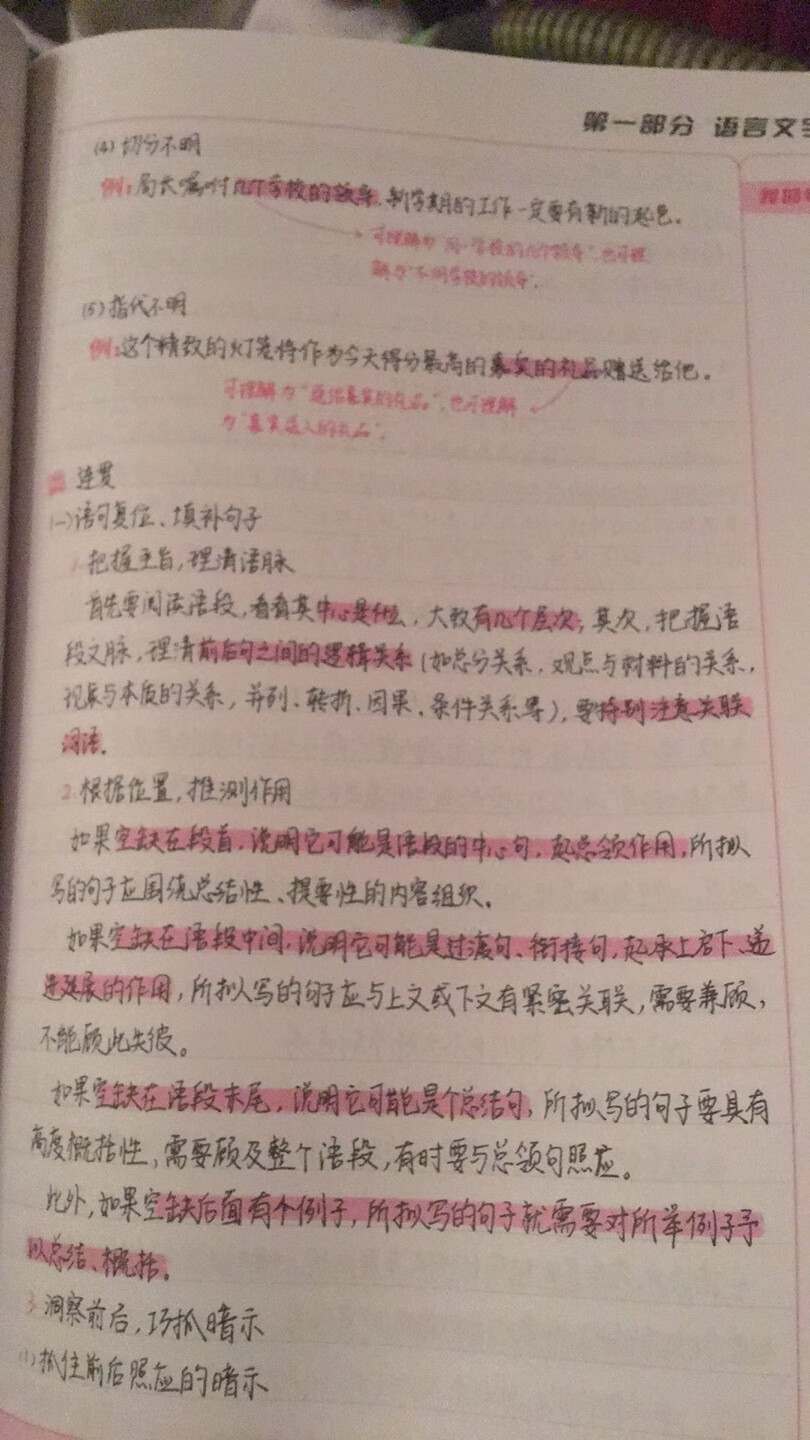 第一部分 语言文字
(4)切分不明
例:局长嘱咐几个学校的领导,新学期的工作一定要有新的起色。
可理解为"同一学校的几个领导",也可理
解为"不同学校的领导"。
(5)指代不明
例:这个精致的灯笼将作为今天得分最高的嘉宾的礼品赠送给他。
可理解为"送给嘉宾的礼品",也可理解
为"嘉宾送人的礼品"。
连贯
(一)语句复位、填补句子
1.把握主旨,理清语脉
首先要阅读语段,看看其中心是什么,大致有几个层次;其次,把握语
段文脉,理清前后句之间的逻辑关系(如总分关系,观点与材料的关系,
现象与本质的关系,并列、转折、因果、条件关系等),要特别注意关联
词语。
2.根据位置,推测作用
如果空缺在段首,说明它可能是语段的中心句,起总领作用,所拟
写的句子应围绕总结性、提要性的内容组织。
如果空缺在语段中间,说明它可能是过渡句、衔接句,起承上启下、递
进延展的作用,所拟写的句子应与上文或下文有紧密关联,需要兼顾,
不能顾此失彼。
如果空缺在语段末尾,说明它可能是个总结句,所拟写的句子要具有
高度概括性,需要顾及整个语段,有时要与总领句照应。
此外,如果空缺后面有个例子,所拟写的句子就需要对所举例子予
以总结、概括。
3.洞察前后,巧抓暗示
(1)抓住前后照应的暗示